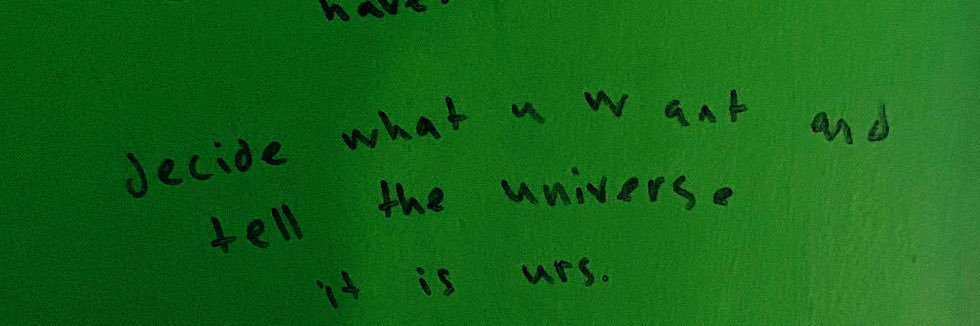 have.
decide what u want and
tell the universe
it is urs.